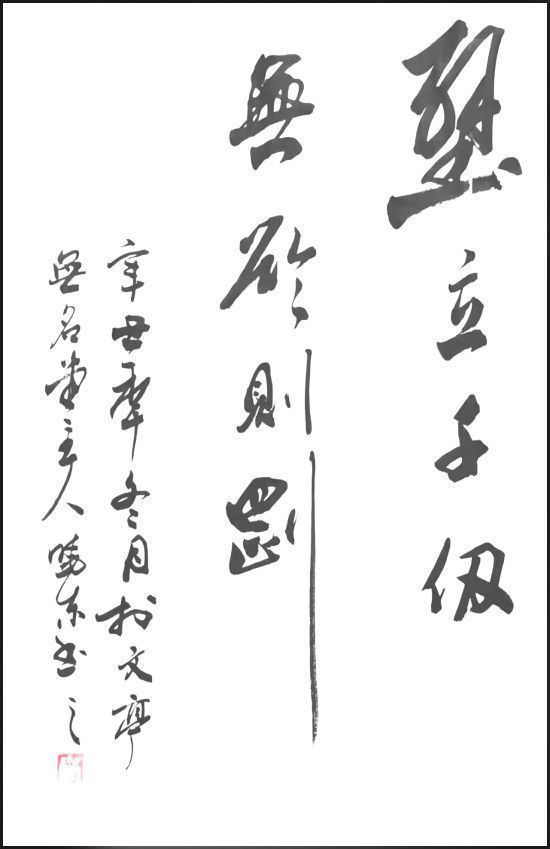 壁立千仞
無欲則剛
辛丑冬月於文亭
無名堂主人曉東書之